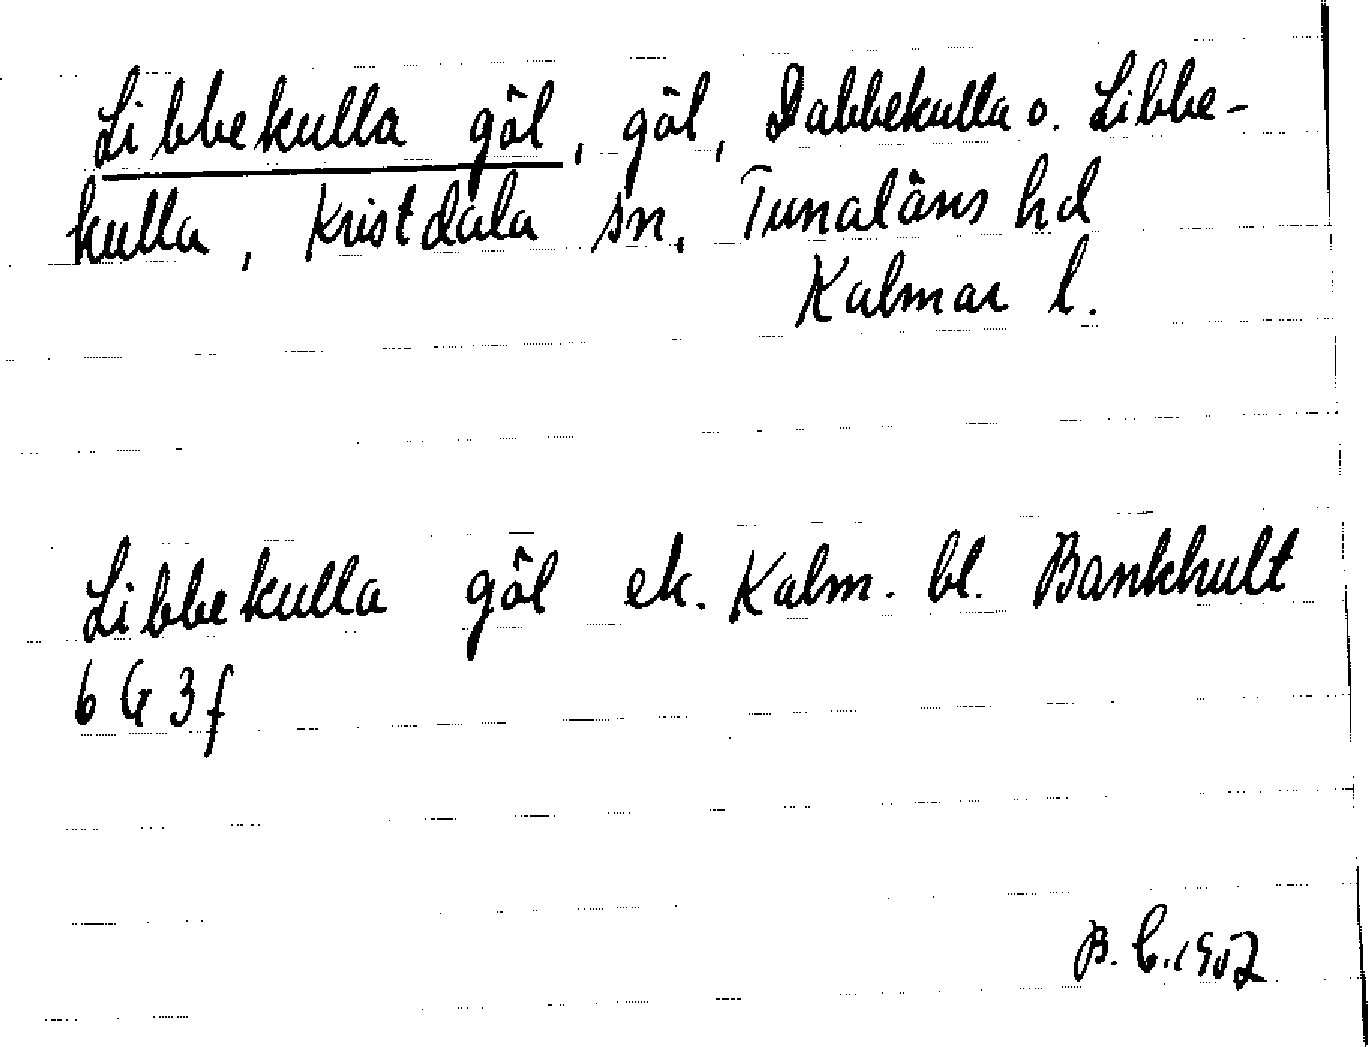 Libbekulla göl, göl, Dabbekulla o. Libbe-
kulla, Kristdala sn, Tunaläns hd
Kalmar l.
Libbekulla göl ek. Kalm. bl. Bankhult
6 G 3f
B. C. 1957